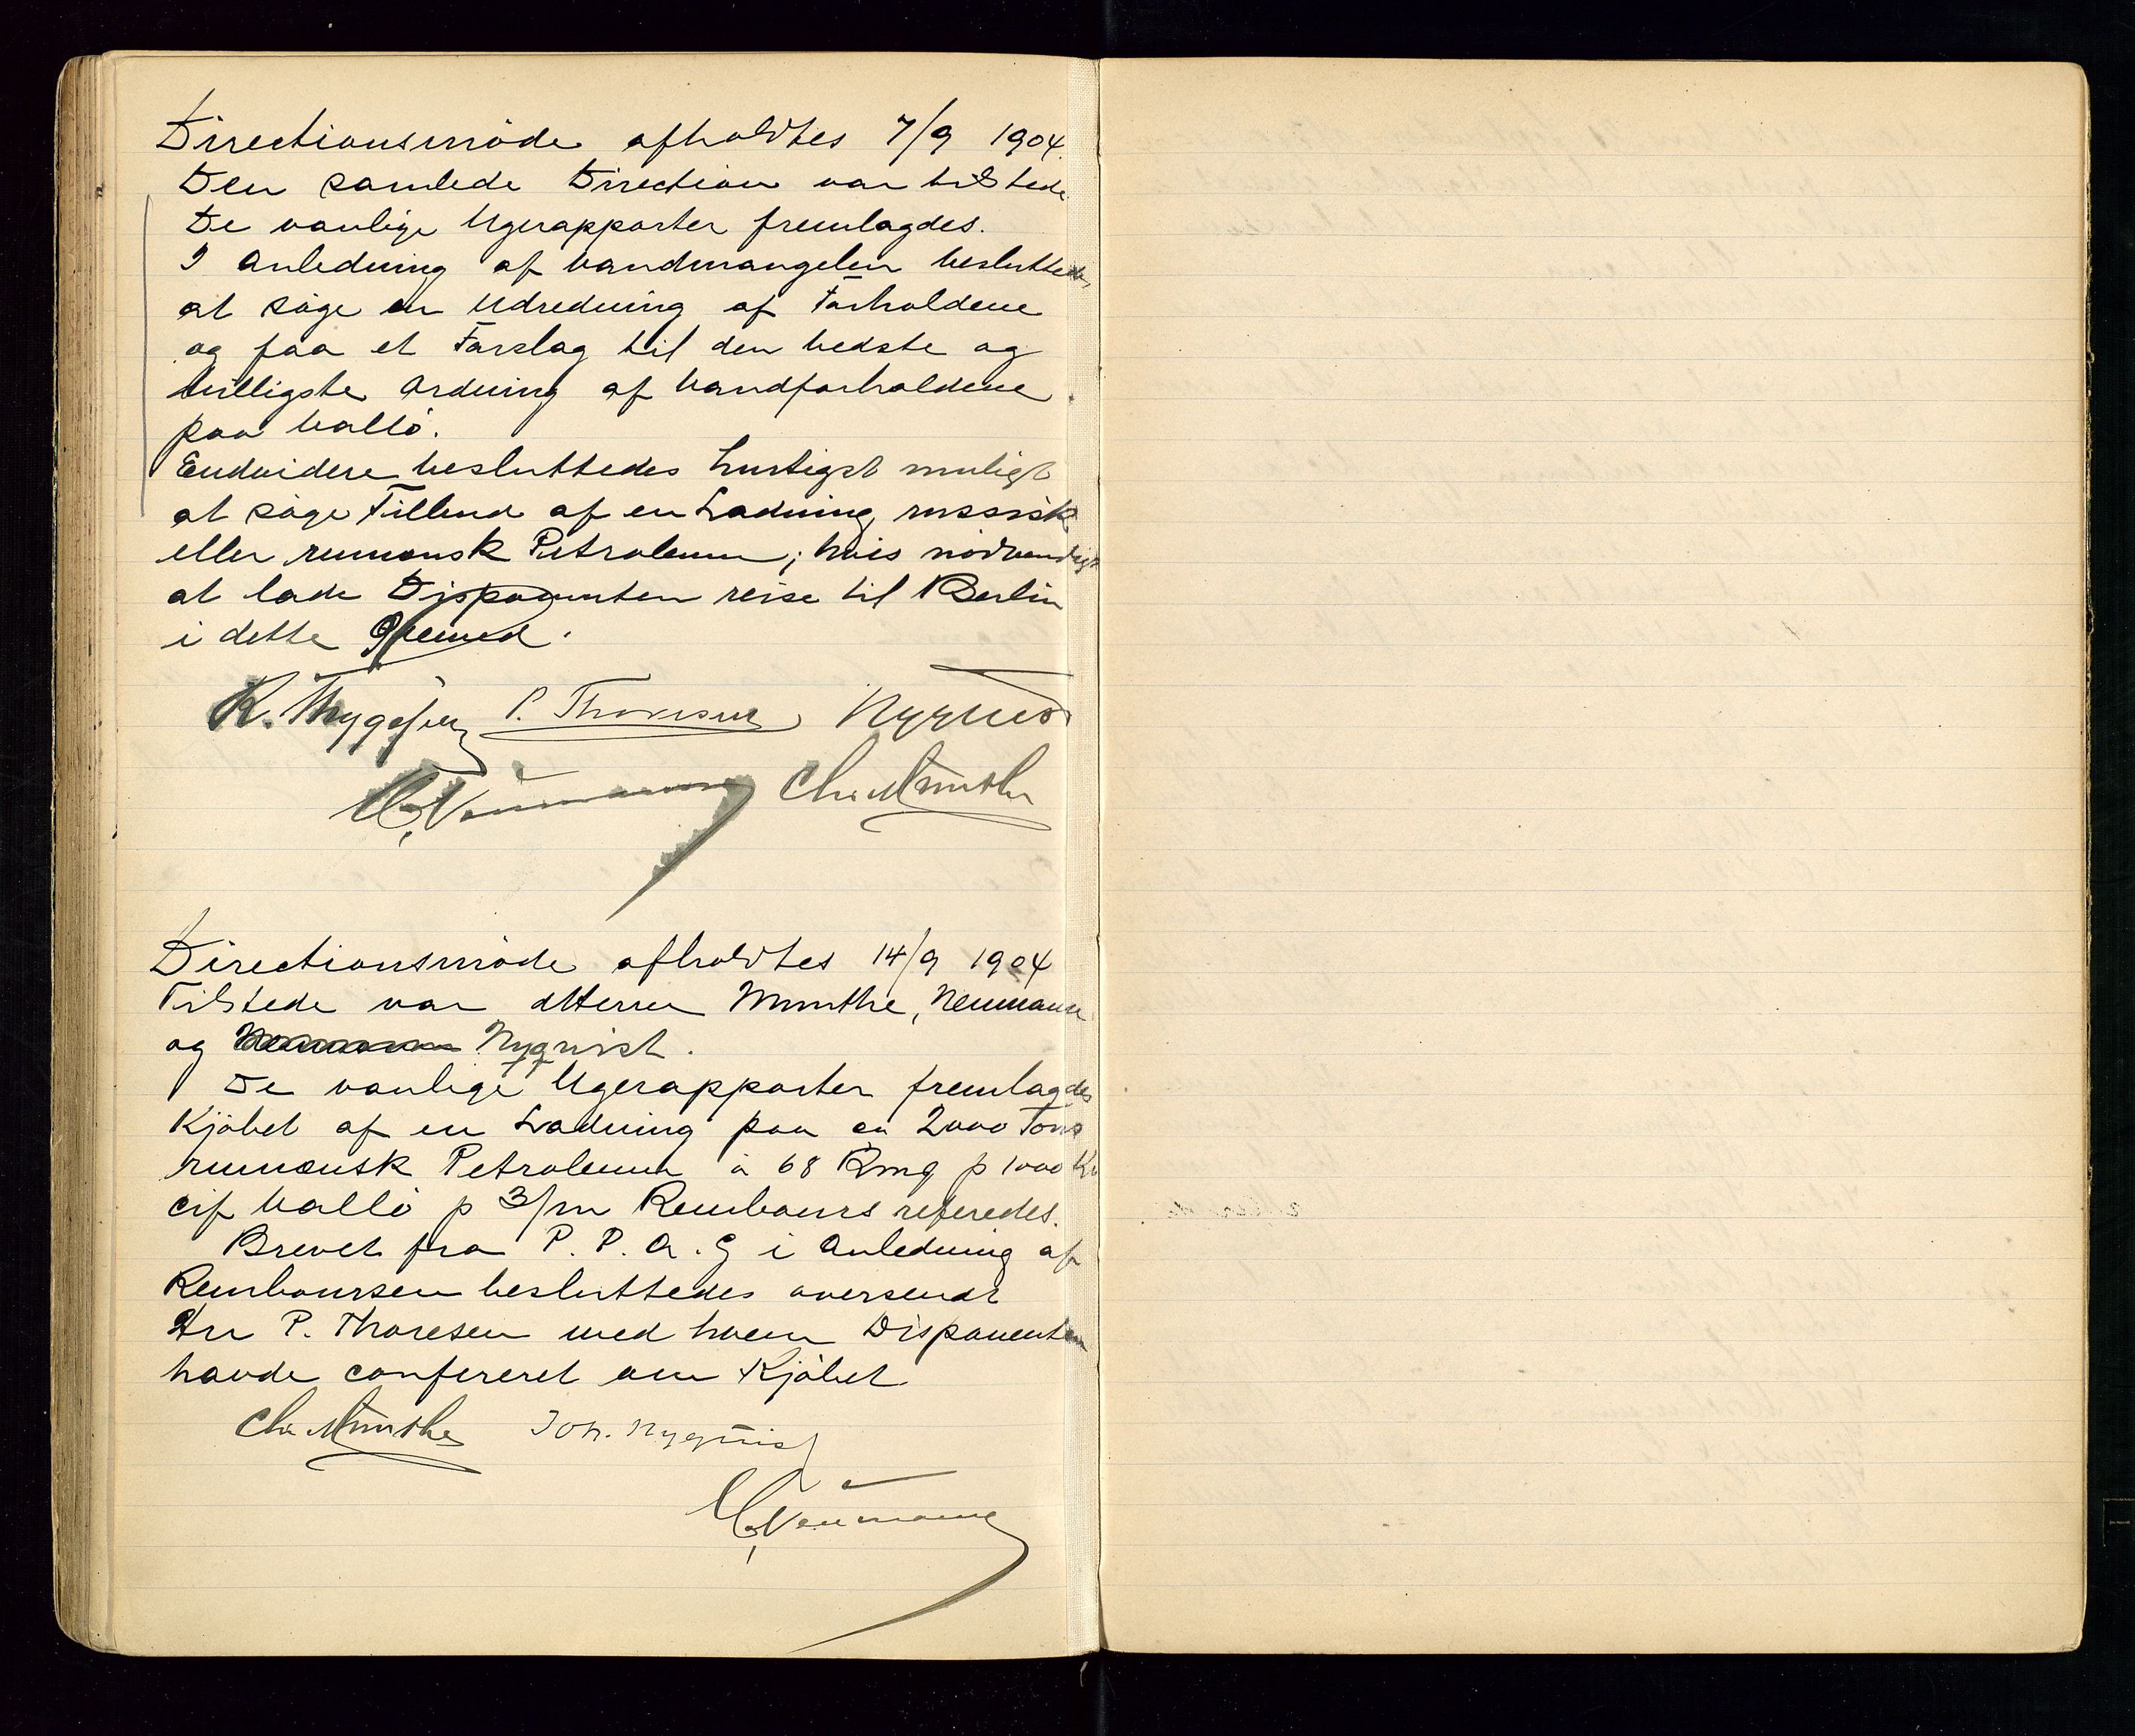 Directionsmöde afholdtes 7/9 1904.
Den samlede Direction var tilstede
De vanlige Ugerapporter fremlagdes.
I Anledning af Vandmangelen besluttedes
at söge en Udredning af Forholdene
og faa et Forslag til den bedste og
billigste Ordning af Vandforholdene
paa Vallö.
Endvidere besluttedes hurtigst muligt
at söge Tilbud af en Ladning russisk
eller rumænsk Petroleum; hvis nödvendigt
at lade Disponenten reise til Berlin
i dette Öiemed.
K. Thygesen P. Thoresen Nyquist
C. Neumann Chr Munthe
Directionsmöde afholdtes 14/9 1904
Tilstede var dHerrer Munthe, Neumann
og Nyqvist.
De vanlige Ugerapporter fremlagdes
Kjöbet af en Ladning paa ca 2000 Tons
rumænsk Petroleum à 68 Rmq p 1000 Ko
cif Vallö p 3/m Rembours referedes.
Brevet fra P. P. A. G i Anledning af
Remboursen besluttedes oversendt
Hr P. Thoresen med hvem Disponenten
havde confereret om Kjöbet
Chr Munthe Joh. Nyquist
C. Neumann